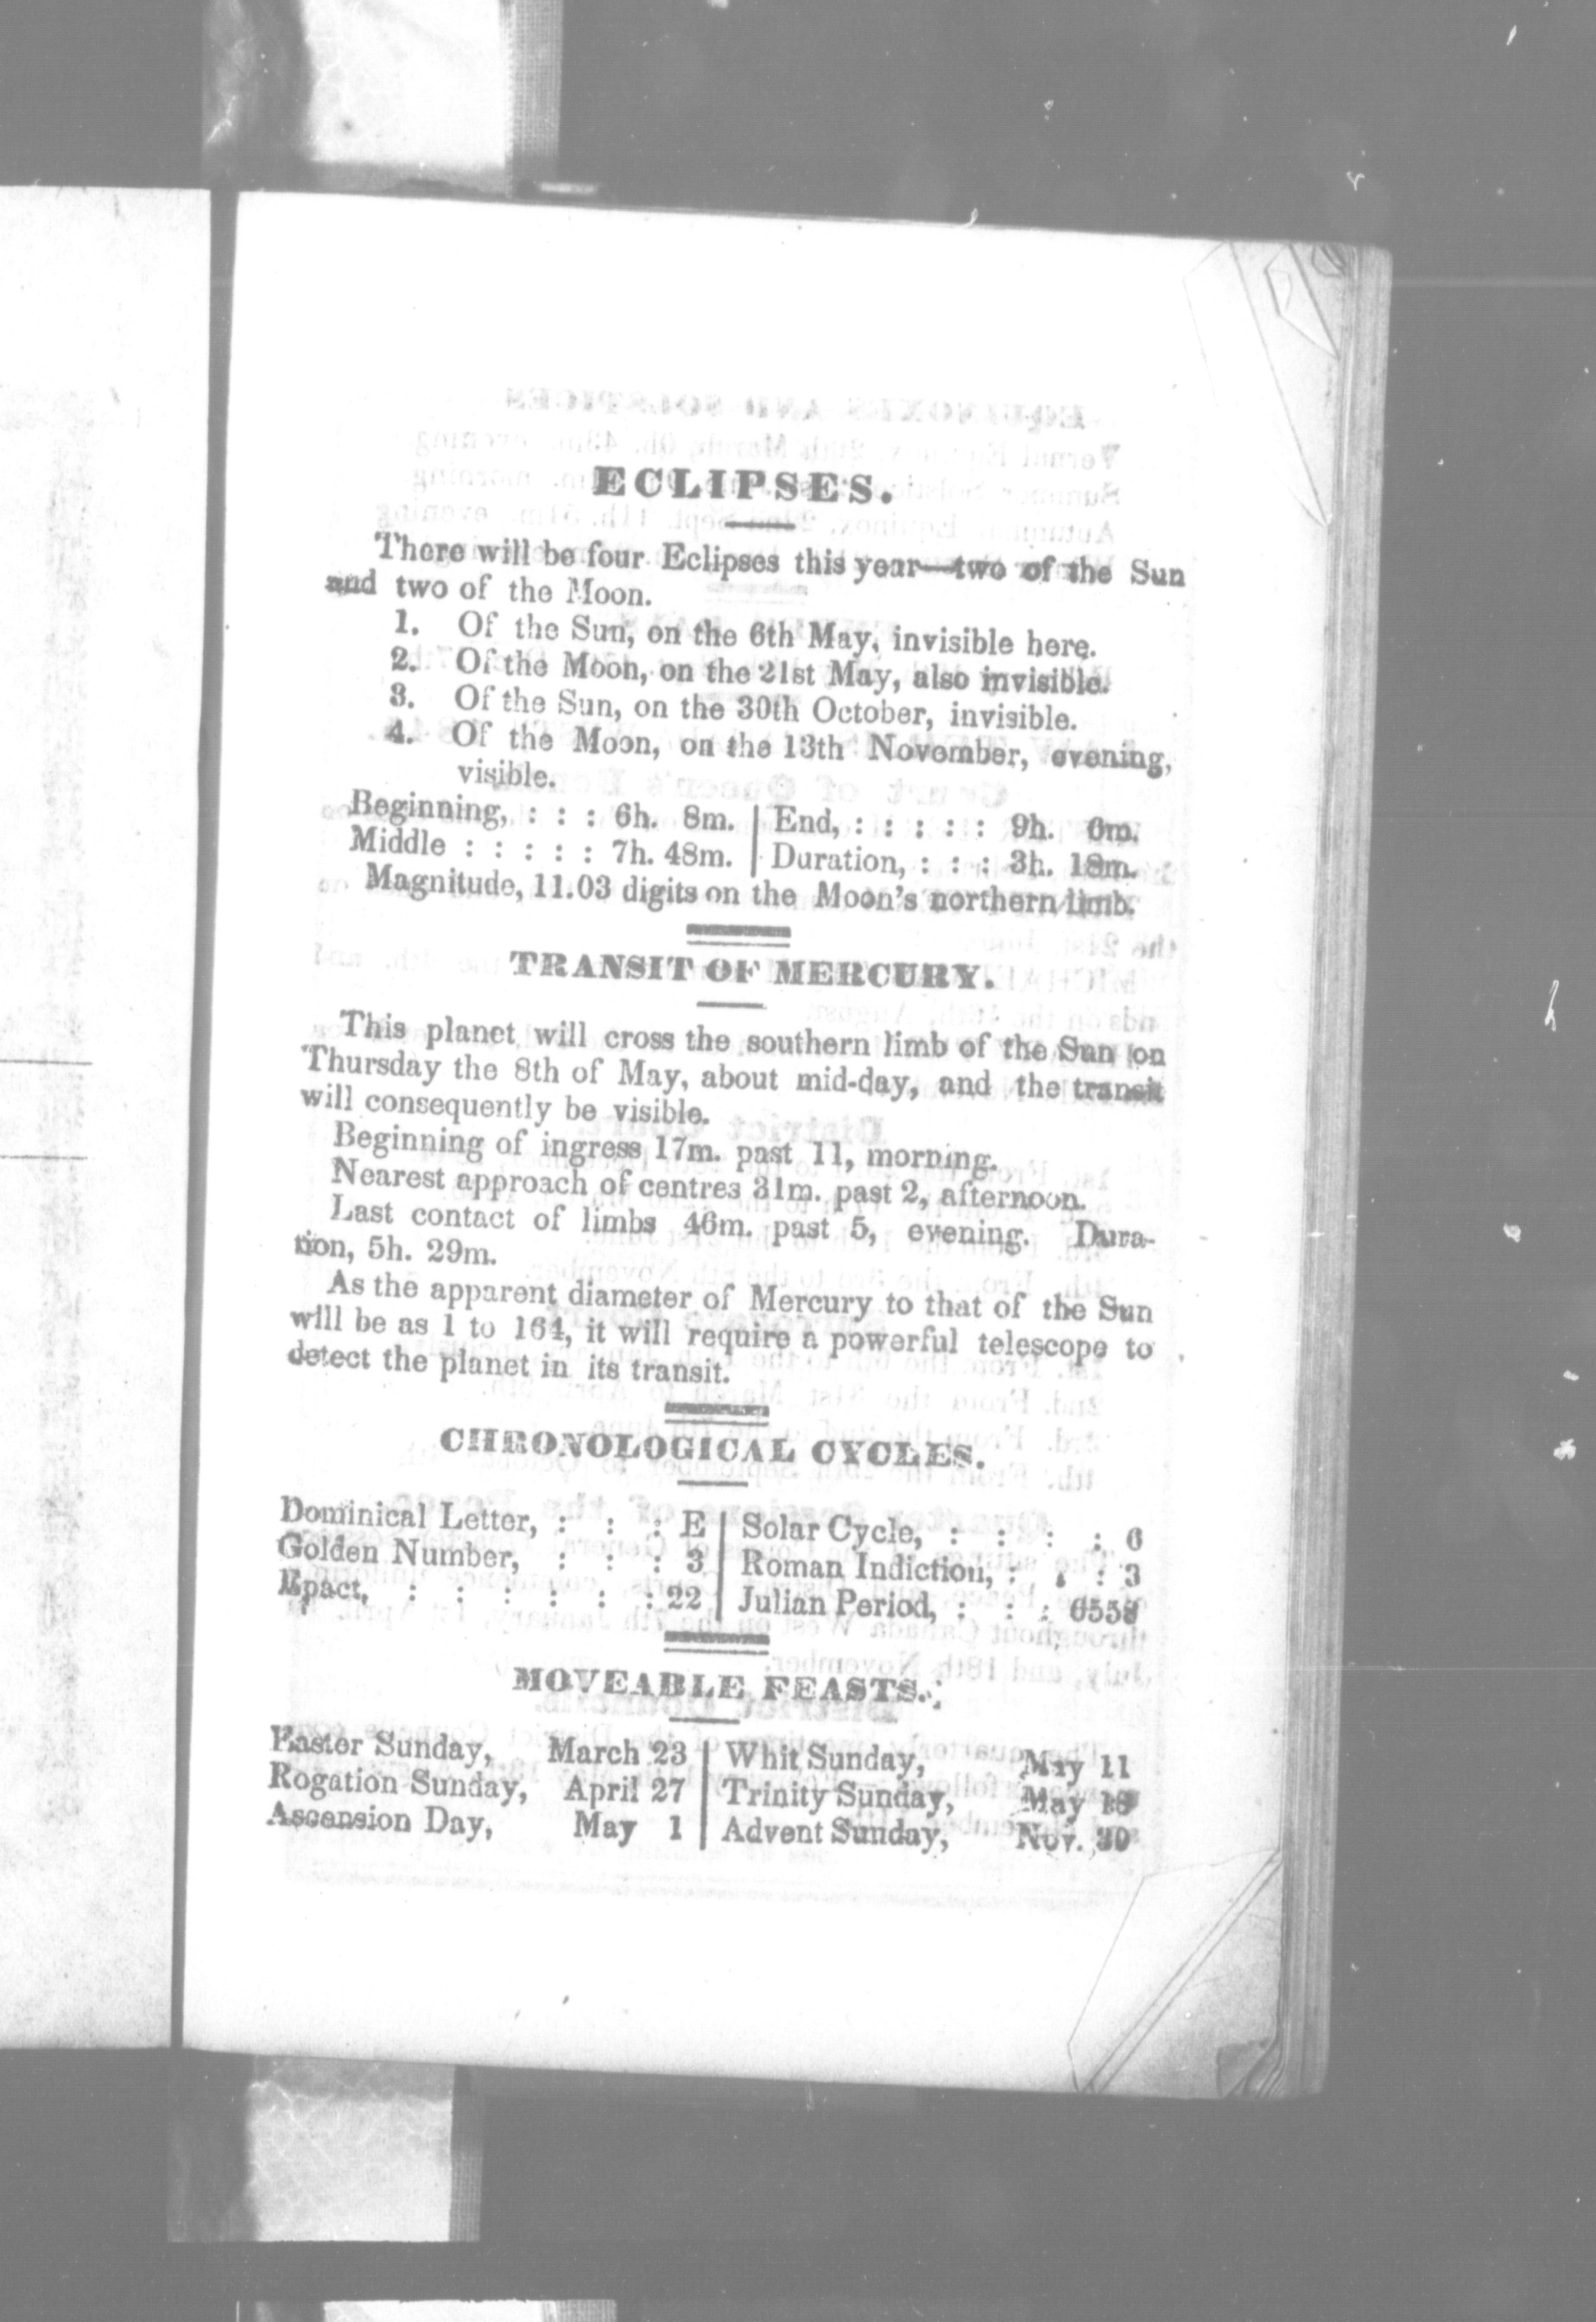 ECLIPSES.
There will be four Eclipses this year—two of the Sun
and two of the Moon.
1. Of the Sun, on the 6th May, invisible here.
2. Of the Moon, on the 21st May, also invisible.
3. Of the Sun, on the 30th October, invisible.
4. Of the Moon, on the 13th November, evening,
visible.
Beginning, : : : 6h. 8m. | End, : : : : : 9h. 6m.
Middle : : : : : 7h. 48m. | Duration, : : : 3h. 18m.
Magnitude, 11.03 digits on the Moon's northern limb.
TRANSIT OF MERCURY.
This planet will cross the southern limb of the Sun on
Thursday the 8th of May, about mid-day, and the transit
will consequently be visible.
Beginning of ingress 17m. past 11, morning.
Nearest approach of centres 31m. past 2, afternoon.
Last contact of limbs 46m. past 5, evening. Dura-
tion, 5h. 29m.
As the apparent diameter of Mercury to that of the Sun
will be as 1 to 164, it will require a powerful telescope to
detect the planet in its transit.
CHRONOLOGICAL CYCLES.
Dominical Letter, : : : E | Solar Cycle, : : : : 6
Golden Number, : : : 3 | Roman Indiction, : : : 3
Epact, : : : : : : 22 | Julian Period, : : : 6558
MOVEABLE FEASTS.
Easter Sunday, March 23 | Whit Sunday, May 11
Rogation Sunday, April 27 | Trinity Sunday, May 18
Ascension Day, May 1 | Advent Sunday, Nov. 30